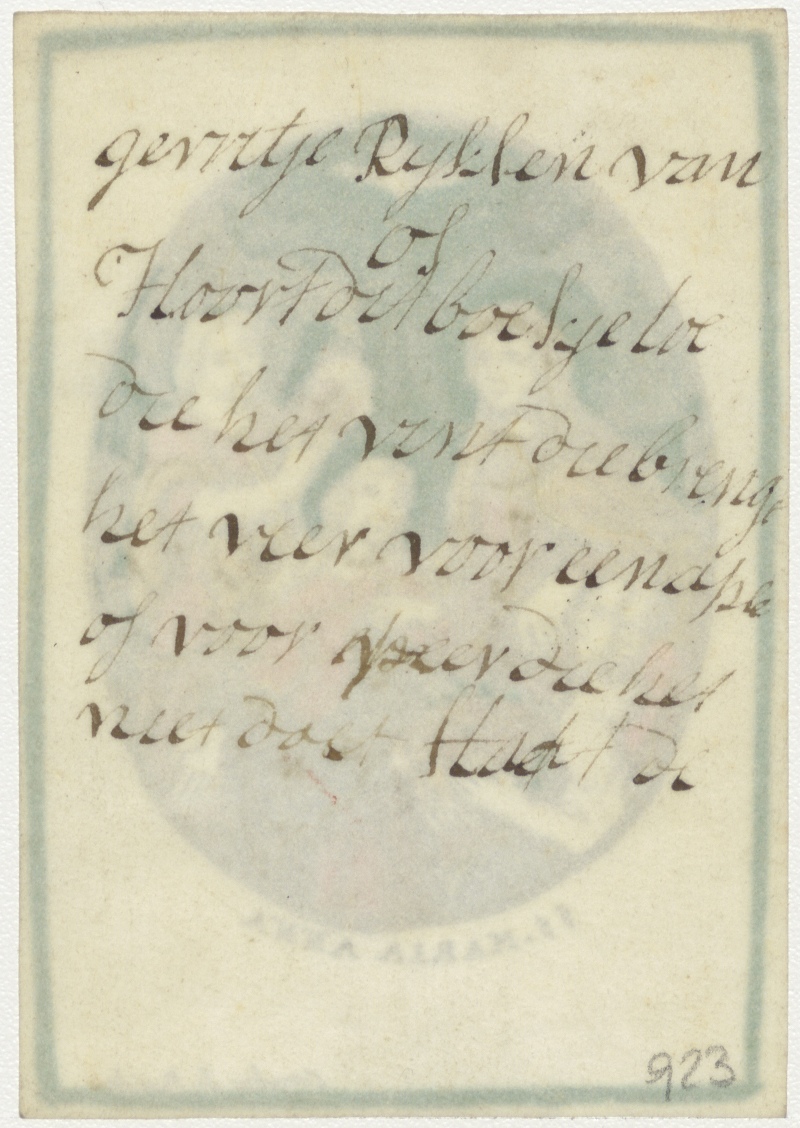 gerritje Ryksen van
of
Hoort dit boekje toe
die het vint die brenge
het weer voor een ape
of voor peer die het
niet doet Staet de
923